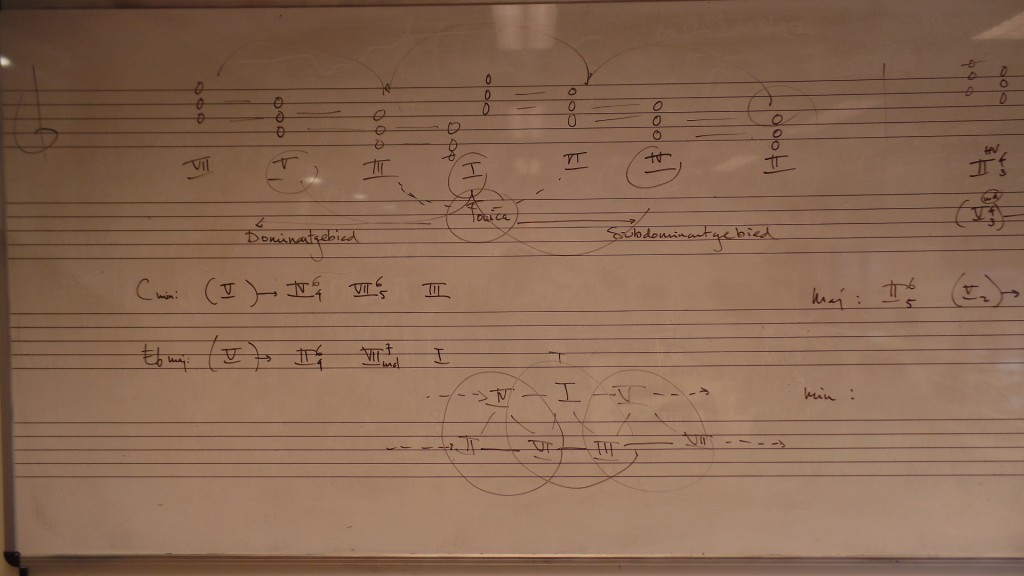 VII V III I VI IV II
HV
II 4 3
Tonica
Dominantgebied Subdominantgebied
(V 4 3)
C min: (V)→ IV 6 4 VII 6 5 III
Maj: II 6 5 (V 2)→
Eb maj: (V)→ II 6 4 VII 7 I
IV — I — V
min:
II — VI — III — VII